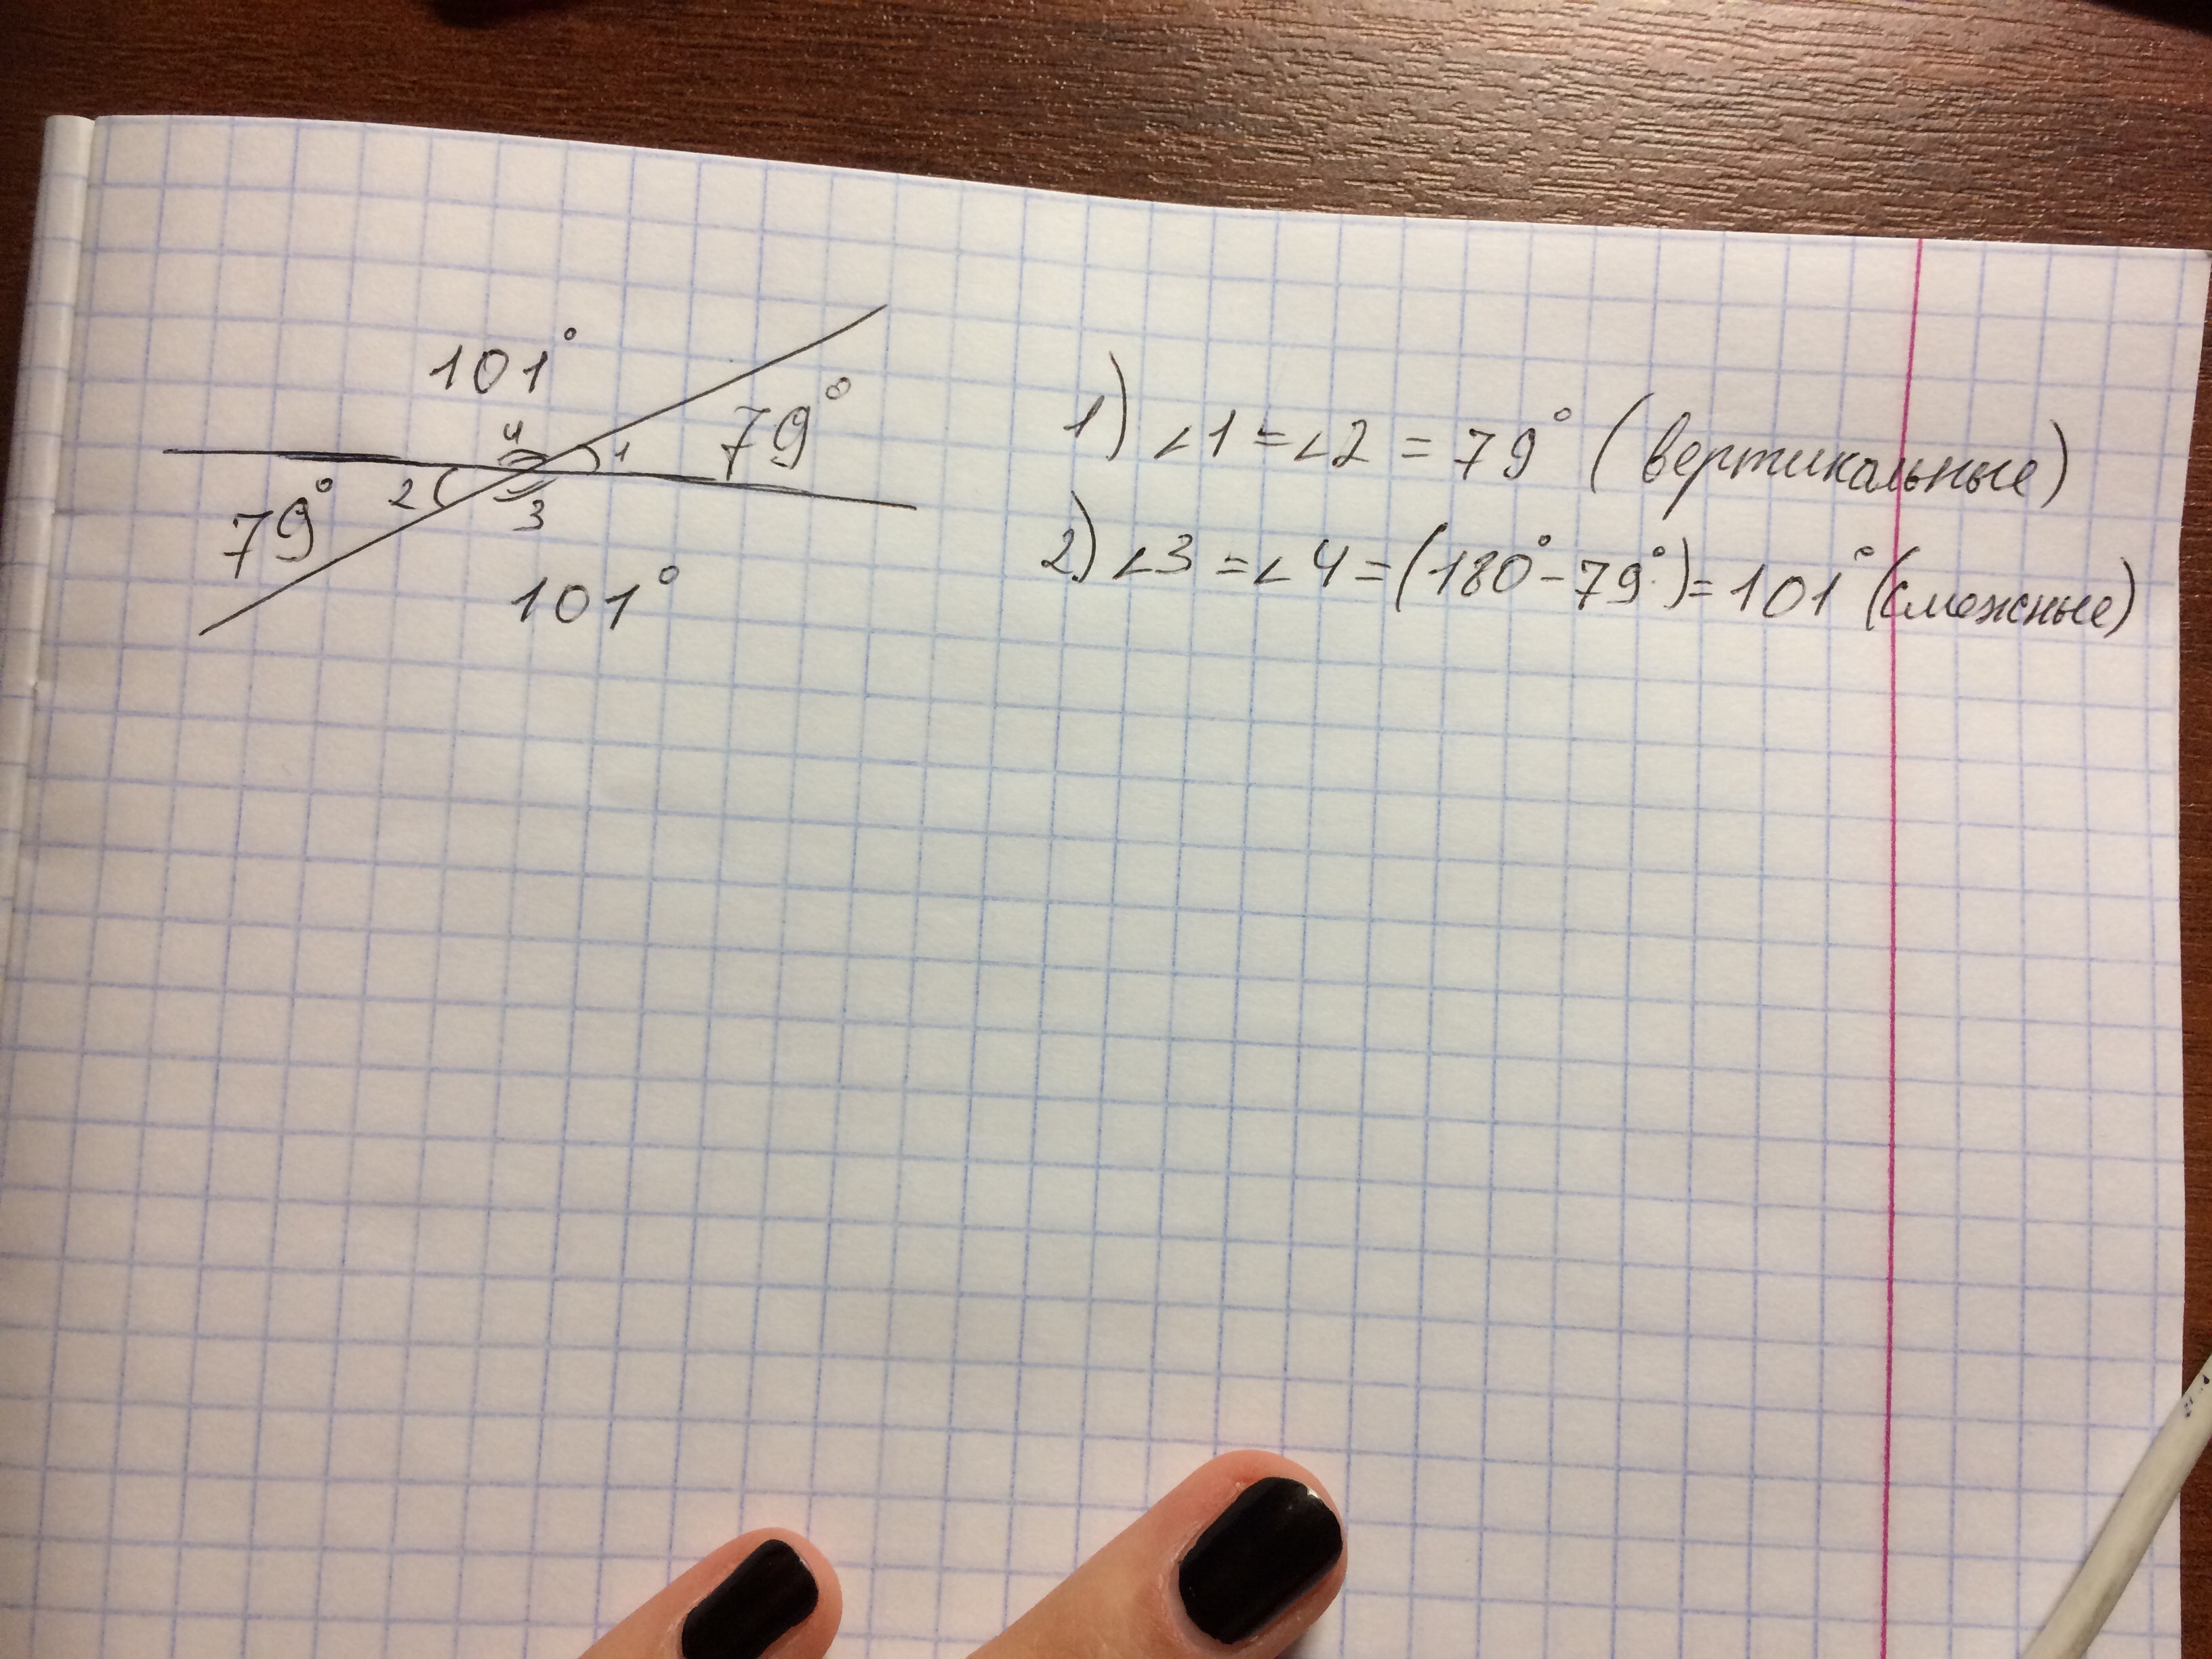 101°
79°
4
1
2
3
79°
101°
1) ∠1 = ∠2 = 79° (вертикальные)
2) ∠3 = ∠4 = (180° - 79°) = 101° (смежные)